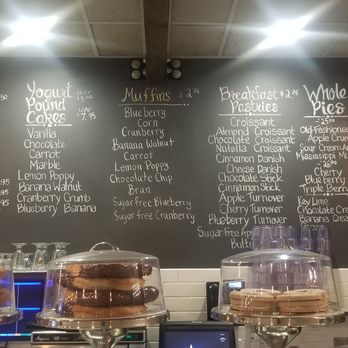 Yogurt
Pound
Cakes
Vanilla
Chocolate
Carrot
Marble
Lemon Poppy
Banana Walnut
Cranberry Crumb
Blueberry Banana
Muffins $2.75
Blueberry
Corn
Cranberry
Banana Walnut
Carrot
Lemon Poppy
Chocolate Chip
Bran
Sugar free Blueberry
Sugar free Cranberry
Breakfast $2.75
Pastries
Croissant
Almond Croissant
Chocolate Croissant
Nutella Croissant
Cinnamon Danish
Cheese Danish
Chocolate Stick
Cinnamon Stick
Apple Turnover
Cherry Turnover
Blueberry Turnover
Sugar free App
Butt
Whole
Pies
Old Fashioned
Apple Crum
Sour Cream A
Mississippi M
Cherry
Blueberry
Triple Berr
Key Lime
Chocolate Crea
Banana Crea